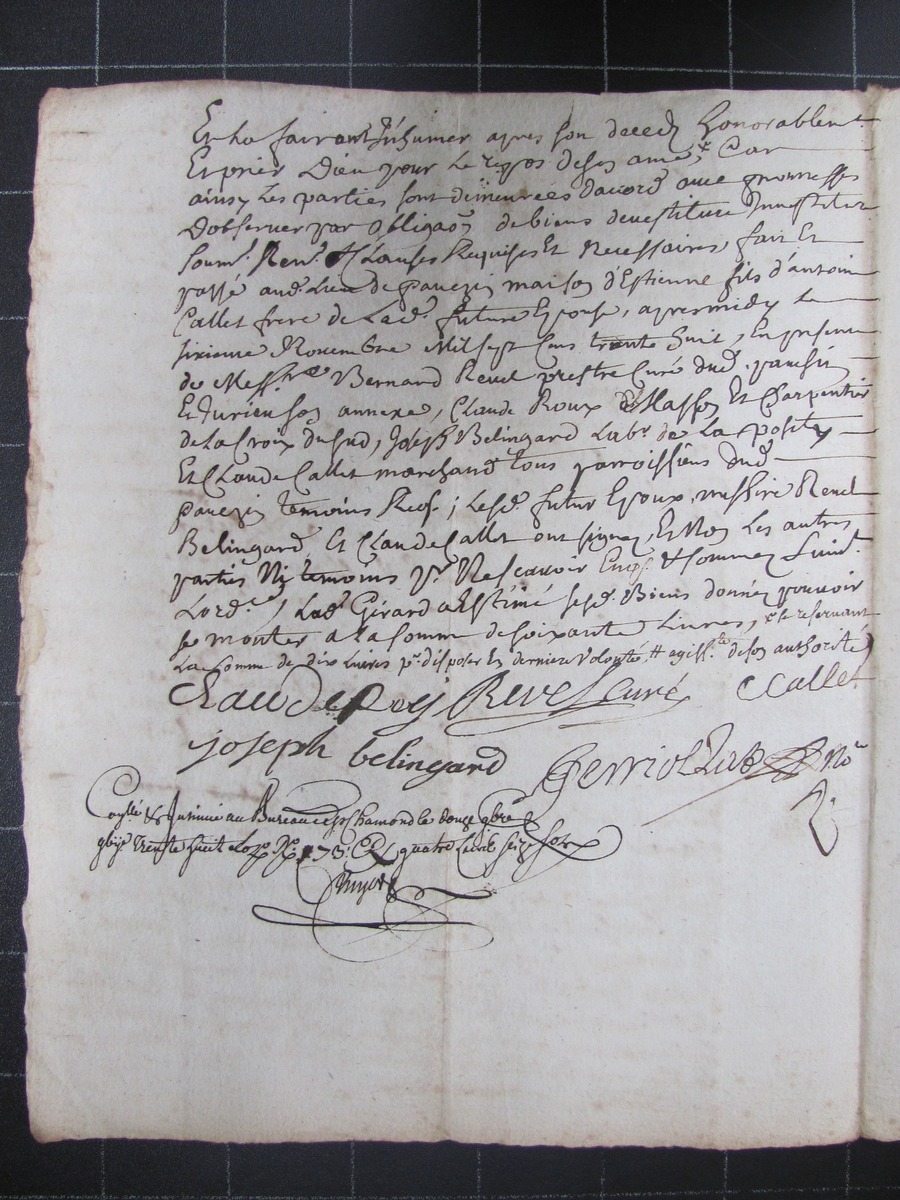 Et la fairont Inhumer apres son deced honorablem.t
Et prier Dieu pour le repos de son ame, x Car
ainsy les parties sont demeurées dacord avec promesses
Dobserver par obligaõn de biens devestiture Investiture
soum.s Ren.s & Clauses Requises Et Necessaires, fait Et
passé aud. Lieu de pavezin maison d'Estienne fils d'antoine
Callet frere de Lad.e future Epouse, apremidy le
sixieme Novembre Mil sept Cens trente huit, En presence
de Mess.re Bernard Revel prestre Curé dud. pavezin
Et Jurieu son annexe, Claude Roux Masson Et Charpentier
de La Croix du sud, Joseph Belingard Lab.r de La
Et Claude Callet marchand tous parroissiens dud.
pavezin temoins Req.s ; Lesd. futur Epoux, messire Revel
Belingard, Et Claude Callet ont signez, Et Non Les autres
parties Ny temoins p.r Ne scavoir Enq.s & sommez suiv.t
Lord.ce / Lad. Gerard a Estimé sesd. Biens donnez pouvoir
se monter a la somme de soixante Livres, x se reservant
La somme de dix Livres p.r disposer En derniere volonté # agiss.te de son authorité
Claude Revel curé CCallet
joseph belingard
Ferriol No.re
Con.llé & Insinué au Bureau de S.t Chamond le douze 9bre
trente huit quatre Livres seize sols